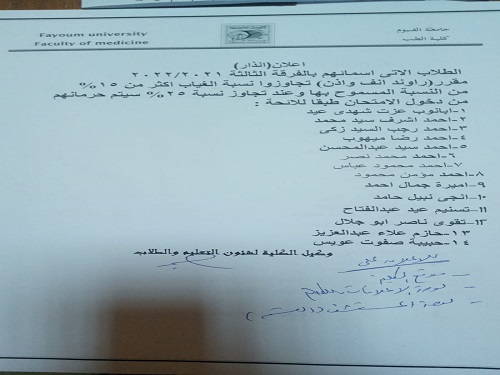 Fayoum university
Faculty of medicine
جامعة الفيوم
كلية الطب
اعلان (انذار)
الطلاب الاتى اسمائهم بالفرقة الثالثة ٢٠٢٢/٢٠٢١
مقرر (راوند انف واذن) تجاوزوا نسبة الغياب اكثر من ١٥%
من النسبة المسموح بها وعند تجاوز نسبة ٢٥% سيتم حرمانهم
من دخول الامتحان طبقا للائحة :
١- ابانوب عزت شهدى عيد
٢- احمد اشرف سيد محمد
٣- احمد رجب السيد زكى
٤- احمد رضا ميهوب
٥- احمد سيد عبدالمحسن
٦- احمد محمد نصر
٧- احمد محمود عباس
٨- احمد مؤمن محمود
٩- اميرة جمال احمد
١٠- انجى نبيل حامد
١١- تسنيم عيد عبدالفتاح
١٢- تقوى ناصر ابو جلال
١٣- حازم علاء عبدالعزيز
١٤- حبيبة صفوت عويس
وكيل الكلية لشئون التعليم والطلاب
للاعلان على
- موقع الكلية
- لوحة الاعلانات